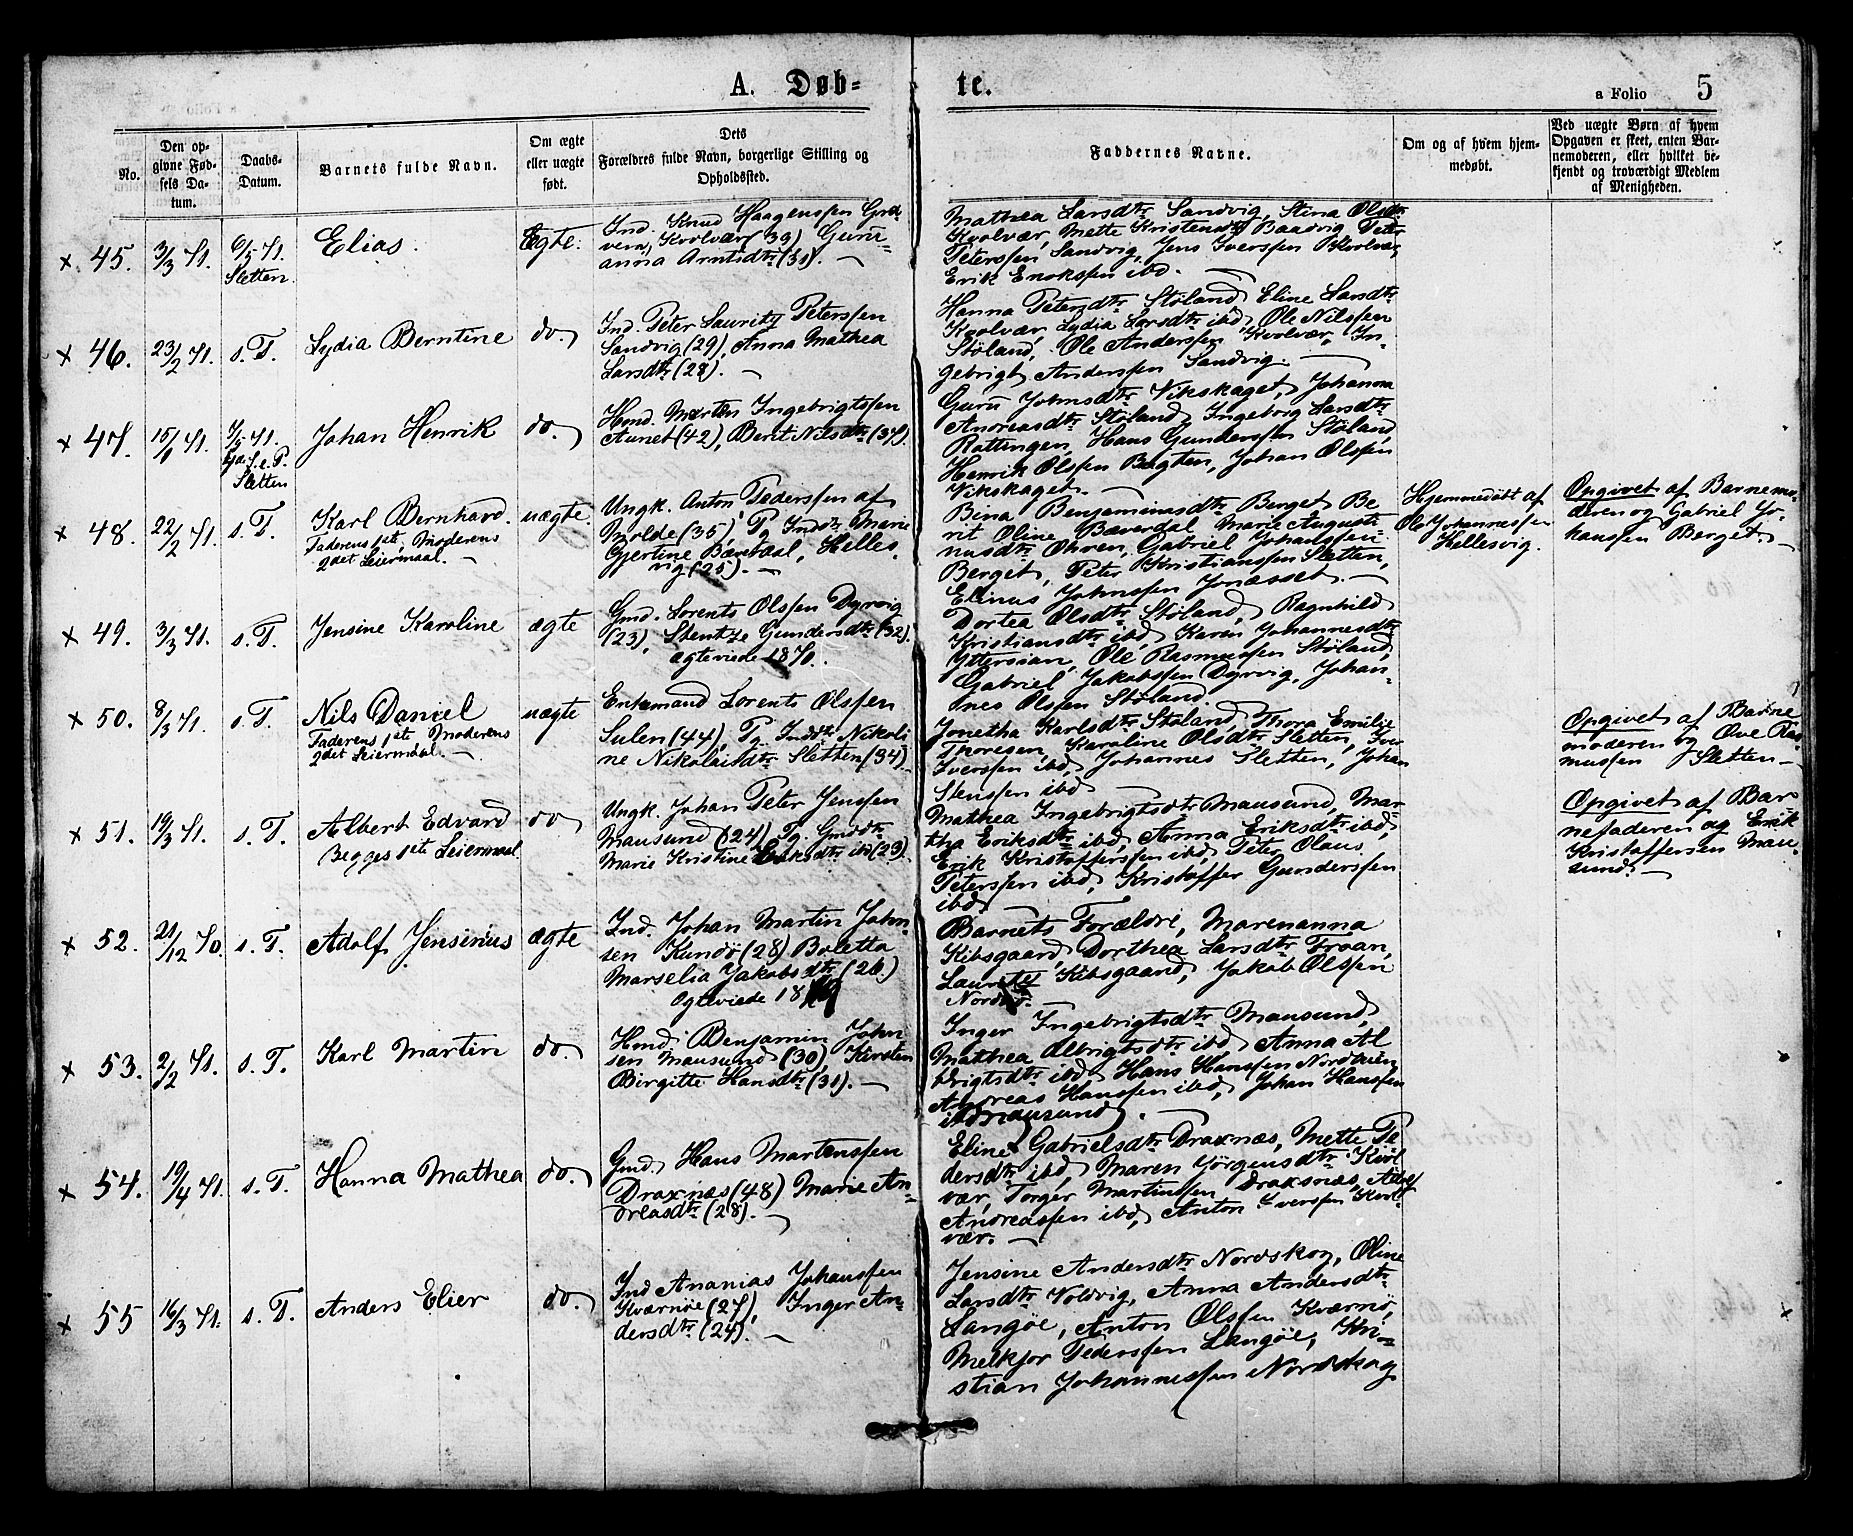 A. Døb= te.
a Folio 5
No.
Den op-
givne Fød-
sels Da-
tum.
Daabs-
Datum.
Barnets fulde Navn.
Om ægte
eller uægte
født.
Dets
Forældres fulde Navn, borgerlige Stilling og
Opholdssted.
Faddernes Navne.
Om og af hvem hjem-
medøbt.
Ved uægte Børn af hvem
Opgaven er skeet, enten Bar-
nemoderen, eller hvilket be-
kjendt og troværdigt Medlem
af Menigheden.
x 45. 3/3 71. 6/5 71.
Sletten
Elias.
Ægte.
Ind. Knud Haagenssen
Kvolvær (39) Guru=
anna Arntsdtr (31). —
Mathea Larsdtr Sandvig, Stina Olsdtr
Kvolvær, Mette Kristensdtr Baadvig Peter
Peterssen Sandvig, Jens Iverssen Kvolvær,
Erik Enokssen ibd. —
x 46. 23/2 71. s. T.
Lydia Berntine
do.
Ind. Peter Lauritz Peterssen
Sandvig (29), Anna Mathea
Larsdtr (28). —
Hanna Petersdtr Støland, Eline Larsdtr
Kvolvær, Lydia Larsdtr ibd, Ole Nilssen
Støland, Ole Anderssen Kvolvær, In-
gebrigt Anderssen Sandvig. —
x 47. 15/1 71. 7/5 71.
4de S. e. P.
Sletten
Johan Henrik
do.
Hmd. Morten Ingebrigtssen
Aunet (42), Berit Nilsdtr (37).
Guru Johnsdtr Vikskaget, Johanna
Andreasdtr Støland, Ingeborg Larsdtr
Rottingen, Hans Gunderssen Støland,
Henrik Olssen Bagten, Johan Olssen
Vikskaget. —
x 48. 22/2 71. s. T.
Karl Bernhard.
Faderens 1ste, Moderens
2det Leiermaal. —
uægte.
Ungk. Anton Pederssen af
Molde (35), Pg Indtr Marie
Gjertine Bærdal, Helles.
vig (25). —
Bina Benjaminsdtr Berget Be-
rit Oline Bæverdal, Marie August-
inusdtr Ohren, Gabriel Johanssen
Berget, Peter Kristianssen Sletten,
Elinus Johnssen Jonæsset. —
Hjemmedøbt af
Ole Johannessen
Hellesvig.
Opgivet af Barnemo-
deren og Gabriel Jo-
hanssen Berget. —
x 49. 3/3 71. s. T.
Jensine Karoline
ægte
Gmd. Lorents Olssen Dyrvig
(23), Gundersdtr (32).
Ægteviede 1870.
Dortea Olsdtr Støland, Ragnhild
Kristiansdtr ibd, Karen Johannesdtr
Yttersian, Ole Rasmussen Støland,
Gabriel Jakobssen Dyrvig, Johan-
nes Olssen Støland.
x 50. 8/3 71. s. T.
Nils Daniel
Faderens 1ste Moderens
2det Leiermaal. —
uægte
Enkemand Lorents Olssen
Sulen (44), Pg. Indtr Nikoli
ne Nikolaisdtr Sletten (34). —
Jonetha Karlsdtr Støland, Thora Emilie
Thoresen, Karoline Olsdtr Sletten, Iver
Iverssen ibd, Johannes Sletten, Johan
Stenssen ibd —
Opgivet af Barne
moderen og Ove Ras-
mussen Sletten —
x 51. 19/3 71. s. T.
Albert Edvard
Begges 1ste Leiermaal.
do
Ungk. Johan Peter Jenssen
Mausund (24), Pg. Gmdtr
Marie Kristine Eriksdtr ibd (23).
Mathea Ingebrigtsdtr Mausund, Mar-
tha Eriksdtr ibd, Anna Eriksdtr ibd,
Erik Kristofferssen ibd, Peter Olaus
Peterssen ibd, Kristoffer Gunderssen
ibd. —
Opgivet af Bar
nefaderen og Erik
Kristoffersen Mau-
sund. —
x 52. 21/12 70. s. T.
Adolf Jensinius
ægte
Ind. Johan Martin John
sen Kundø (28) Boletta
Marselia Jakobsdtr (26.)
Ægteviede
Barnets Forældre, Marenanna
Kibsgaard Dorthea Larsdtr Froan,
Lauritz Kibsgaard, Jakob Olssen
x 53. 2/2 71. s. T.
Karl Martin
do.
Hmd. Benjamin John
sen Mausund (30), Kirsten
Birgitte Hansdtr (31). —
Inger Ingebrigtsdtr Mausund,
Mathea Olbrigtsdtr ibd Anna Al
brigtsdtr ibd, Hans Hanssen
Andreas Hanssen ibd, Johan Hanssen
Mausund. —
x 54. 19/4 71. s. T.
Hanna Mathea
do.
Gmd. Hans Martenssen
Draxnæs (48) Marie An-
dreasdtr (28). —
Eline Gabrielsdtr Draxnæs, Mette Pe
dersdtr ibd, Maren Jørgensdtr Kvol
vær, Torger Martinssen Draxnæs,
Andreassen ibd, Anton Iverssen Kvol-
vær. —
x 55 16/3 71. s. T.
Anders Elier
do.
Ind Ananias Johanssen
Kværnøe (27), Inger An-
dersdtr (24). —
Jensine Andersdtr Nordskog, Oline
Larsdtr Voldvig, Anna Andersdtr
Langøe, Anton Olssen Kværnø,
Melkjor Pederssen Langøe, Kri-
stian Johannessen Nordskog